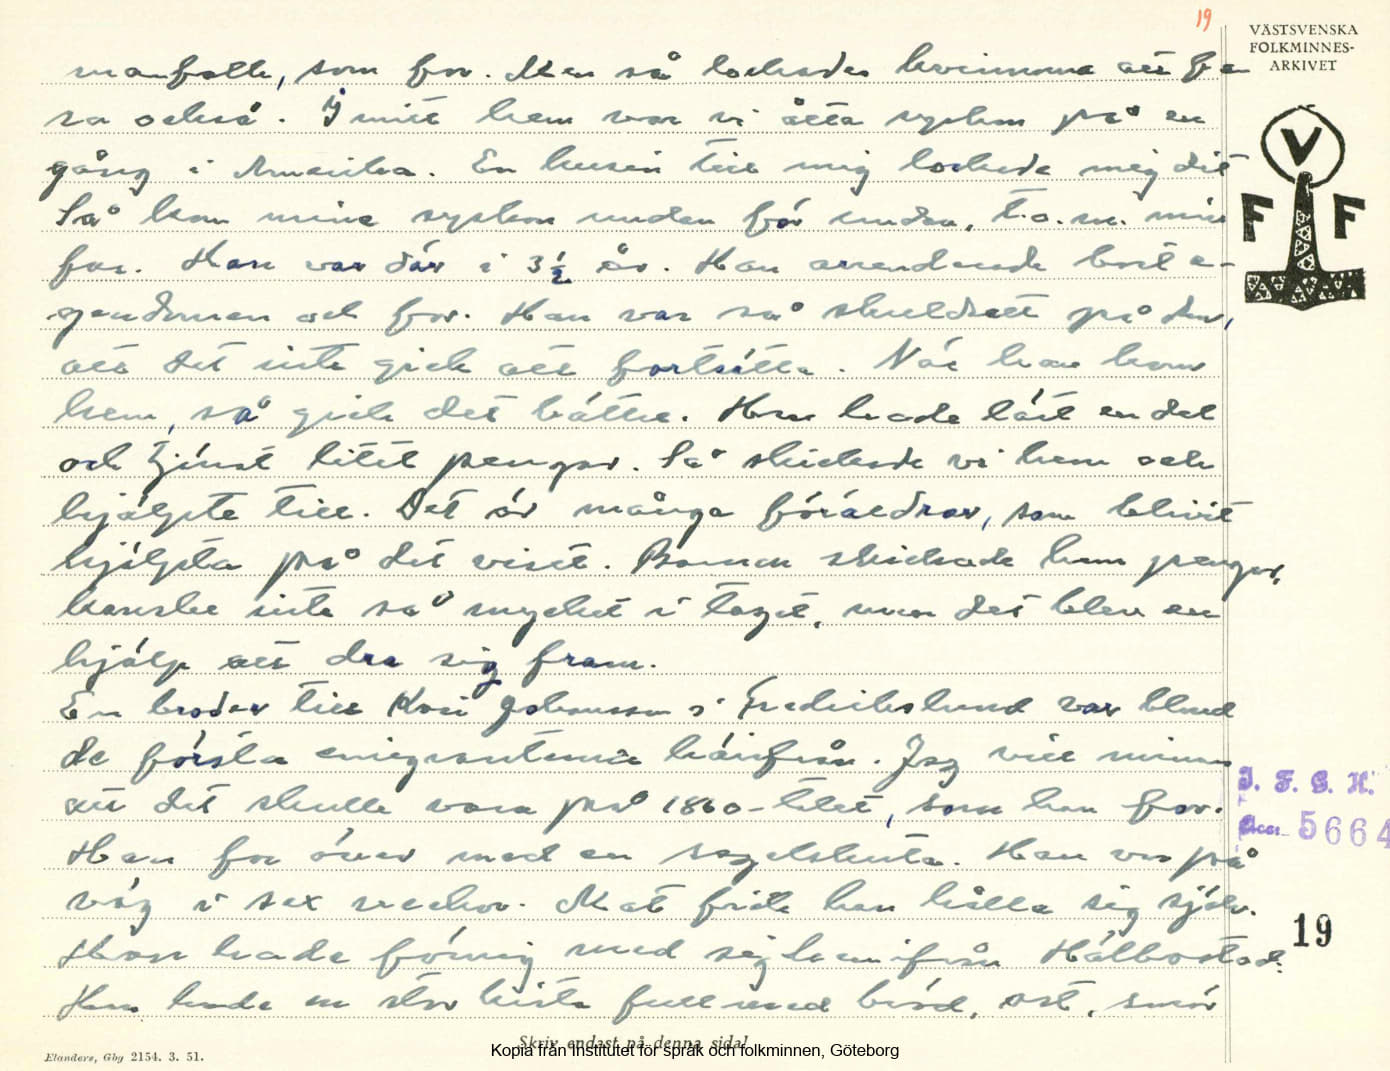 19
VÄSTSVENSKA
FOLKMINNES-
ARKIVET
manfolk, som for. Men så lockades kvinnorna att fa-
ra också. I mitt hem var vi åtta syskon på en
gång i Amerika. En kusin till mig lockade mig dit
Så kom mina syskon undan för undan, t.o.m. min
far. Han var där i 3½ år. Han arrenderade bort e-
gendomen och for. Han var så skuldsatt på den,
att det inte gick att fortsätta. När han kom
hem, så gick det bättre. Han hade läst en del
och tjänat litet pengar. Så skickade vi hem och
hjälpte till. Det är många föräldrar, som blivit
hjälpta på det viset. Barnen skickade hem pengar,
kanske inte så mycket i taget, men det blev en
hjälp att dra sig fram.
En broder till Karl Johansson i Fredrikslund var bland
de första emigranterna härifrån. Jag vill minnas
att det skulle vara på 1860-talet, som han for.
Han for över med en segelskuta. Han var på
väg i sex veckor. Mat fick han hålla sig själv.
Han hade färing med sig hemifrån Hälbostad.
Han hade en stor kista full med bröd, ost, smör
V
F F
I. F. G. H.
Acc. 5664
19
Skriv endast på denna sida!
Kopia från Institutet för språk och folkminnen, Göteborg
Elanders, Gbg 2154. 3. 51.